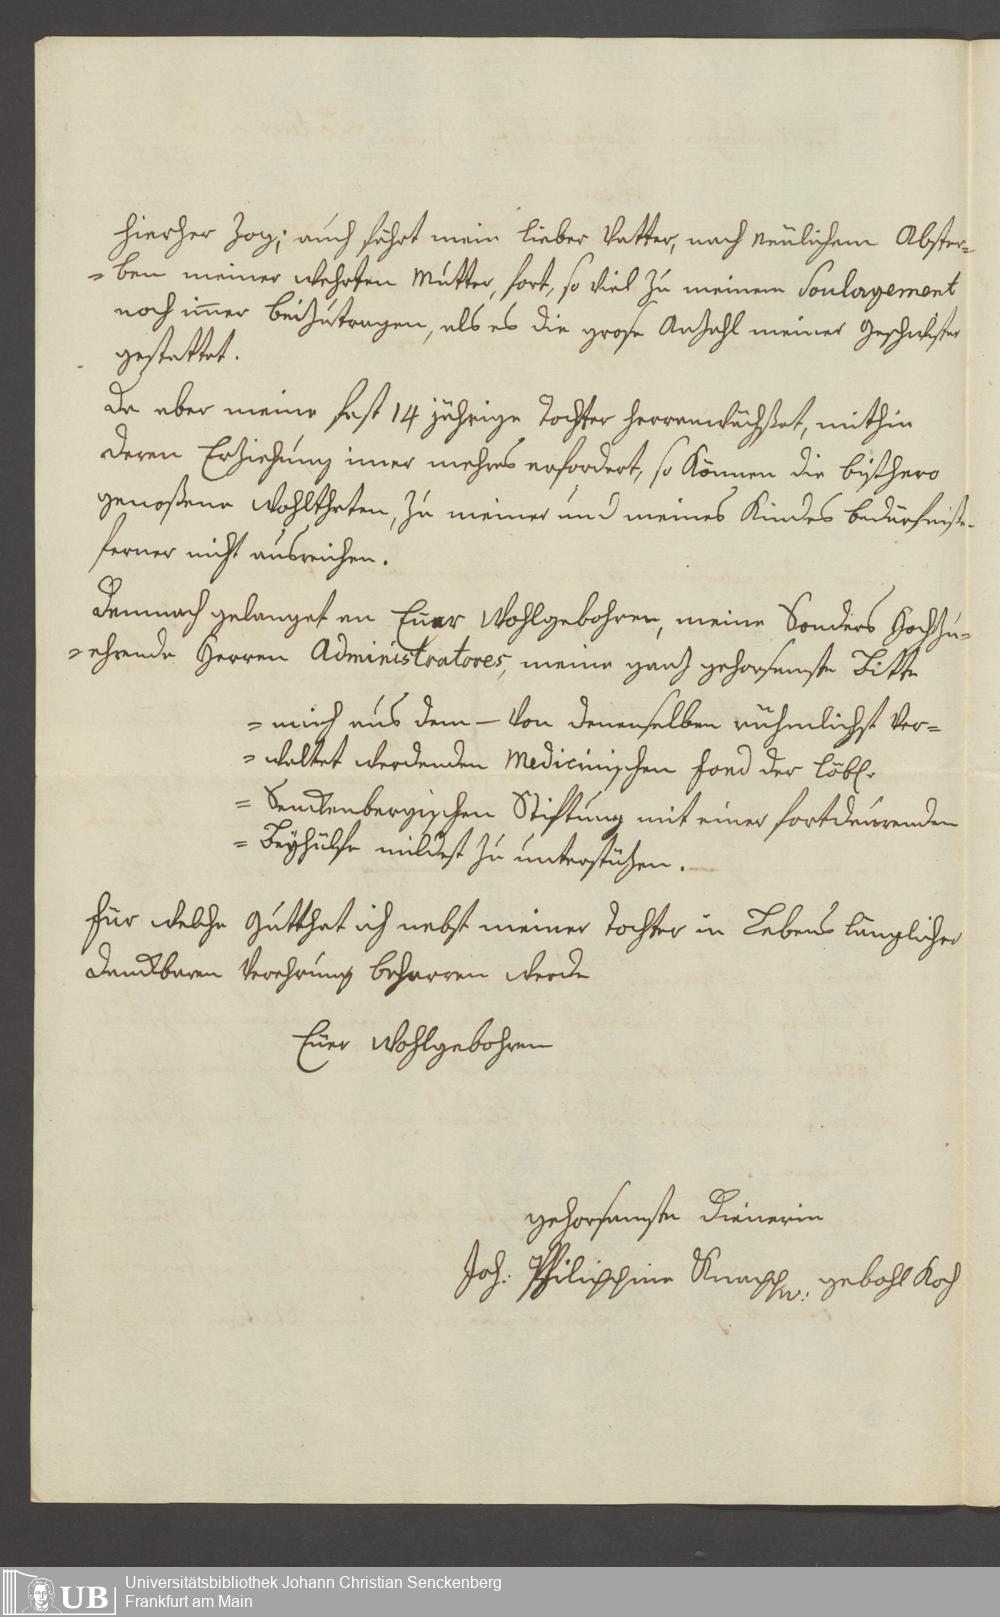 hierher zog; auch fährt mein lieber Vatter, nach neülichem Abster=
=ben meiner wehrten Mutter, fort, so viel zu meinem Soulagement
noch im̄er beizutragen, als es die grose Anzahl meiner Geschwister
gestattet.
Da aber meine fast 14 jährige Tochter herranwächßet, mithin
deren Erziehung im̄er mehres erfordert, so können die bißhero
genoßene Wohlthaten, zu meiner und meines Kindes bedürfniße
ferner nicht ausreichen.
Demnach gelanget an Euer Wohlgebohren, meine Sonders Hochzu=
=ehrende Herren Administratores, meine ganz gehorsamste Bitte
= mich aus dem – von denenselben rühmlichst ver=
= waltet werdenden Medicinischen fond der löbl.
= Senckenbergischen Stiftung mit einer fortdaurenden
= Beyhülfe mildest zu unterstüzen.
für welche Gutthat ich nebst meiner Tochter in Lebens länglicher
danckbaren Verehrung beharren werde
Euer Wohlgebohren
gehorsamste Dienerin
Joh: Philippina Knapp w: gebohl Koch
UB Universitätsbibliothek Johann Christian Senckenberg
Frankfurt am Main